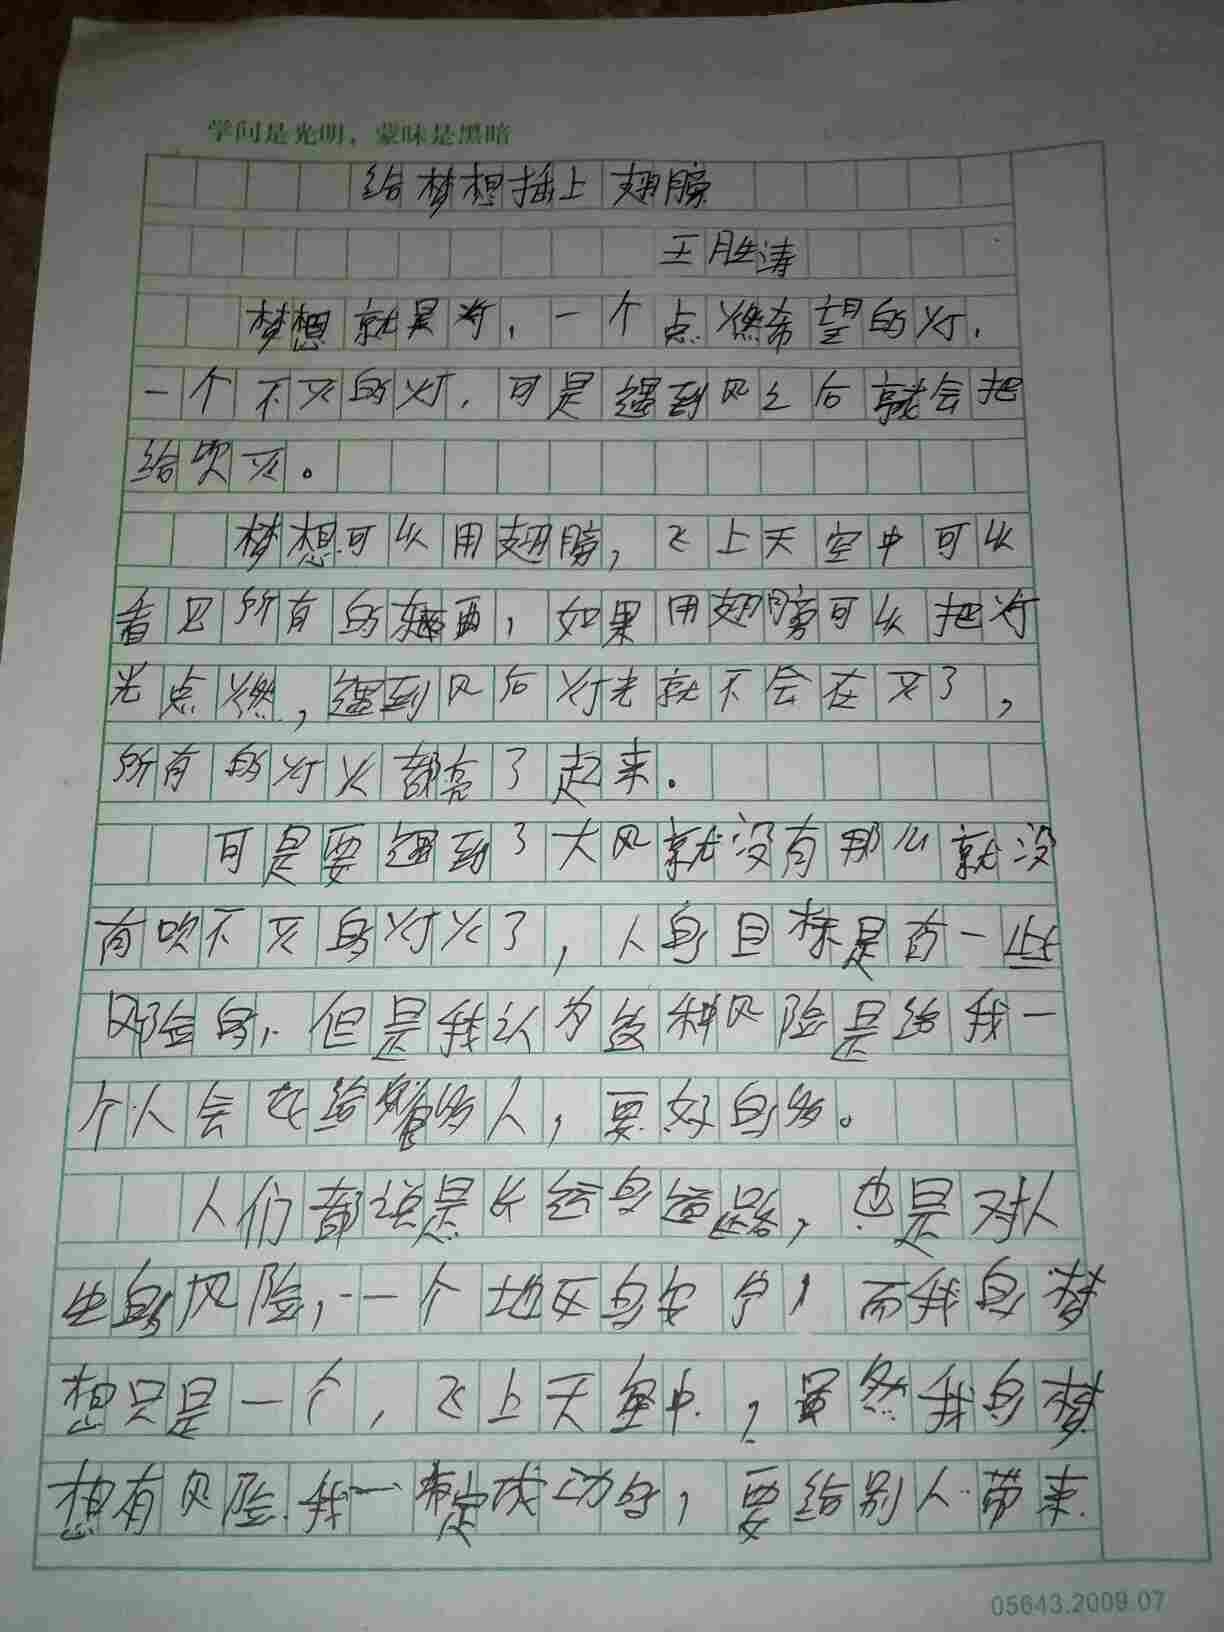 学问是光明，蒙昧是黑暗
给梦想插上翅膀
王胜涛
梦想就是灯，一个点燃希望的灯，
一个不灭的灯，可是遇到风之后就会把
给吹灭。
梦想可以用翅膀，飞上天空中可以
看见所有的东西，如果用翅膀可以把灯
光点燃，遇到风后灯光就不会在灭了，
所有的灯火都亮了起来。
可是要遇到了大风就没有那么就没
有吹不灭的灯火了，人的目标是有一些
风险的，但是我认为这种风险是给我一
个人会在给够的人，要好的多。
人们都说是长远的道路，也是对人
生的风险，一个地区的安宁，而我的梦
想只是一个，飞上天空中，虽然我的梦
想有风险我一定成功的，要给别人带来
05643.2009.07